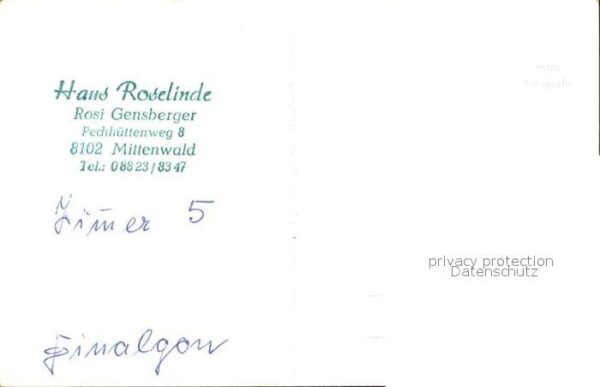 Haus Roselinde
Rosi Gensberger
Pechhüttenweg 8
8102 Mittenwald
Tel.: 08823/8347
Zim̄er 5
Finalgon
privacy protection
Datenschutz